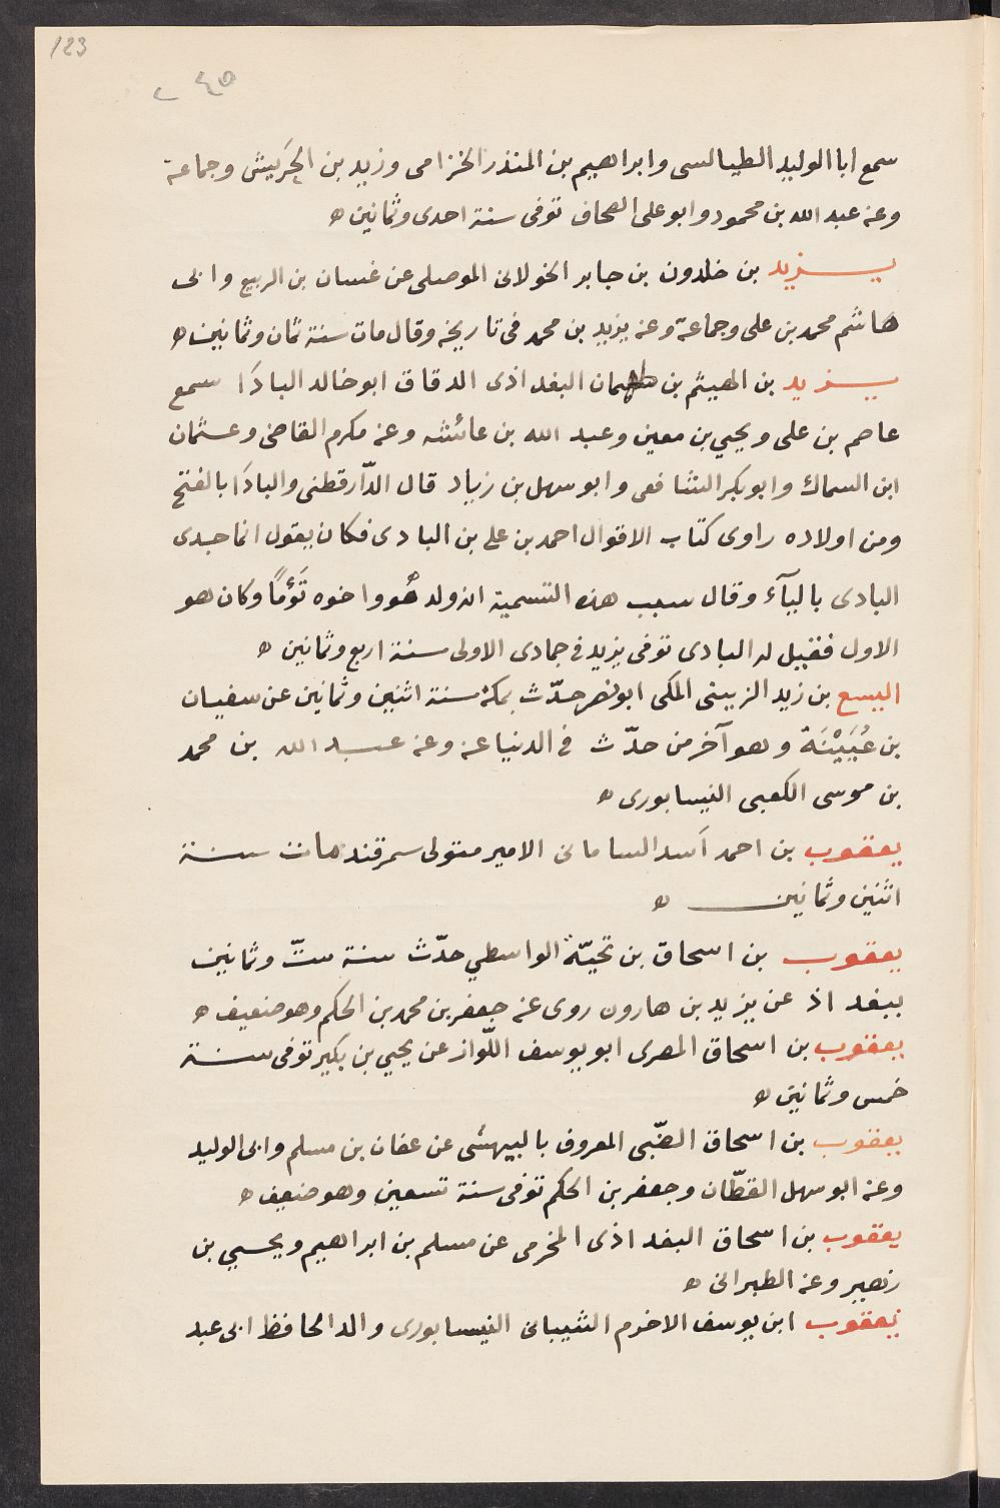 123
سمع ابا الوليد الطيالسى وابراهيم بن المنذر الخزامى وزيد بن الحَرَيش وجماعة
وعنه عبد الله بن محمود وابو على الصحاف توفى سنة احدى وثمانين ه
يزيد بن خلدون بن جابر الخولانى الموصلى عن غسان بن الربيع وابى
هاشم محمد بن على وجماعة وعنه يزيد بن محمد فى تاريخه وقال مات سنة ثمان وثمانين ه
يزيد بن الهيثم بن طهمان البغداذى الدقاق ابو خالد البادَا سمع
عاصم بن على ويحيي بن معين وعبد الله بن عائشه وعنه مكرم القاضى وعثمان
ابن السماك وابو بكر الشافعى وابو سهل بن زياد قال الدّارقطنى والبادَا بالفتح
ومن اولاده راوى كتاب الاقوال احمد بن على بن البادى فكان يقول انما جدى
البادى بالبآء وقال سبب هذه التسمية انه ولد هُو واخوه تَؤمًا وكان هو
الاول فقيل له البادى توفى يزيد فى جمادى الاولى سنة اربع وثمانين ه
اليسع بن زيد الزينبى المكى ابو نصر حدّث بمكة سنة اثنين وثمانين عن سفيان
بن عُيَيْنَة وهو آخر من حدّث فى الدنيا عنه وعنه عبد الله بن محمد
بن موسى الكعبى النيسابورى ه
يعقوب بن احمد اَسد السامانى الامير متولى سمرقند مات سنة
اثنين وثمانين ه
يعقوب بن اسحاق بن تحيّة الواسطي حدّث سنة ستّ وثمانين
ببغداذ عن يزيد بن هارون روى عنه جعفر بن محمد بن الحكم وهو ضعيف ه
يعقوب بن اسحاق المصرى ابو يوسف اللّواز عن يحيي بن بكير توفى سنة
خمس وثمانين ه
يعقوب بن اسحاق الضّبى المعروف بالبيهشى عن عفان بن مسلم وابى الوليد
وعنه ابو سهل القطّان وجعفر بن الحكم توفى سنة تسعين وهو ضعيف ه
يعقوب بن اسحاق البغداذى المخرمى عن مسلم بن ابراهيم ويحيي بن
زهير وعنه الطبرانى ه
يعقوب ابن يوسف الاخرم الشيبانى النيسابورى والد الحافظ ابى عبد